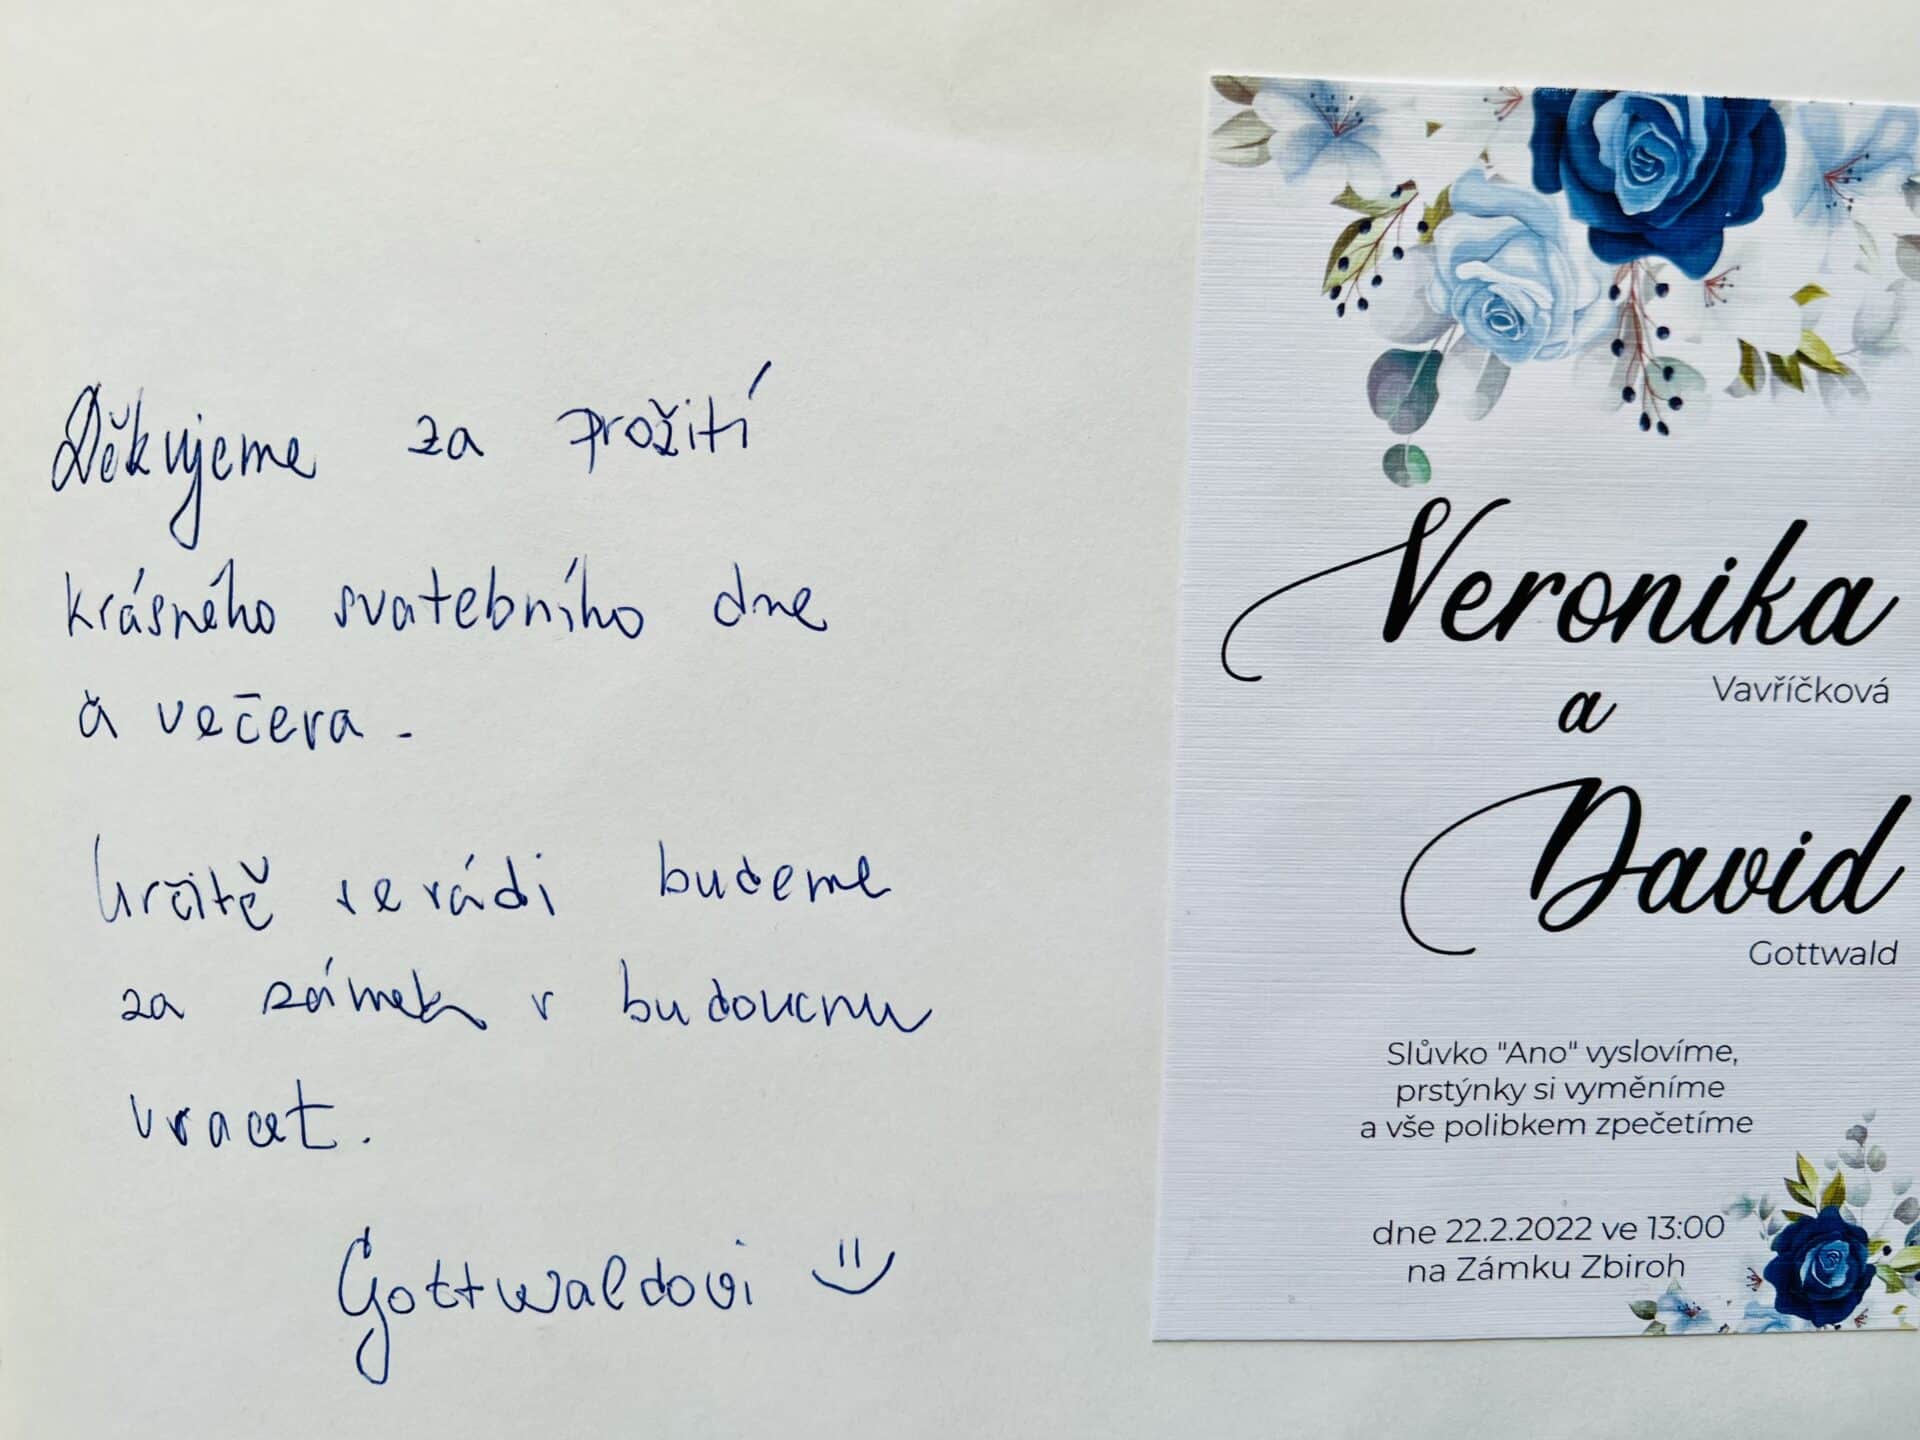 Děkujeme za prožití
krásného svatebního dne
a večera.
Určitě se rádi budeme
za zámek v budoucnu
vracet.
Gottwaldovi
Veronika
Vavříčková
a
David
Gottwald
Slůvko "Ano" vyslovíme,
prstýnky si vyměníme
a vše polibkem zpečetíme
dne 22.2.2022 ve 13:00
na Zámku Zbiroh